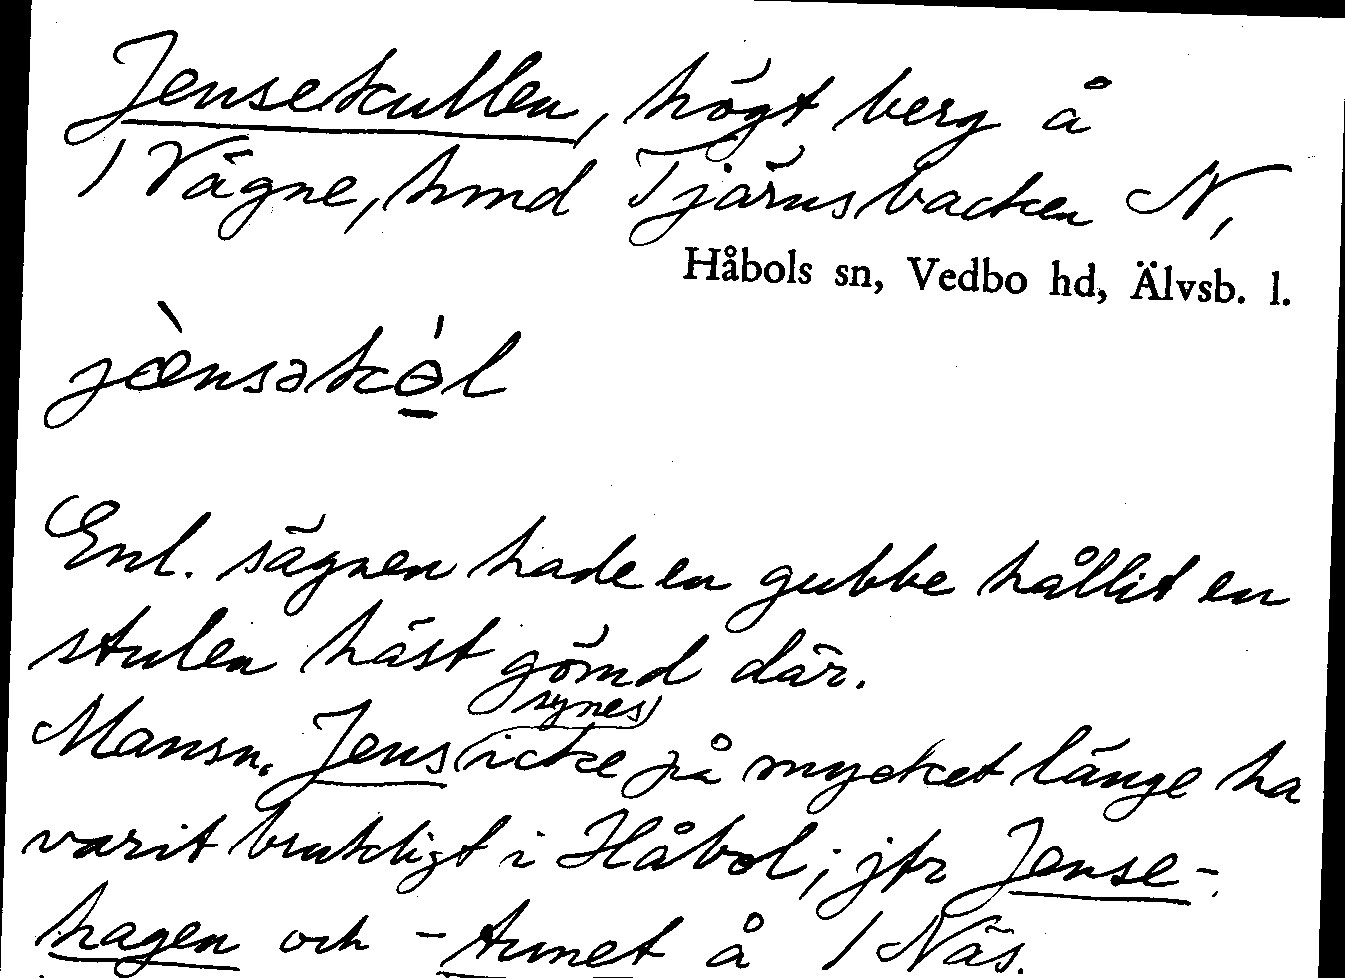 Jensekullen, högt berg å
1 Vägne, hmd Tjärnsbacken N,
Håbols sn, Vedbo hd, Älvsb. l.
jæ̀nsəkɵ̠́l
Enl. sägnen hade en gubbe hållit en
stulen häst gömd där.
Mansn. Jens synes icke på mycket länge ha
varit brukligt i Håbol; jfr Jense-
hagen och -tunet å 1 Näs.